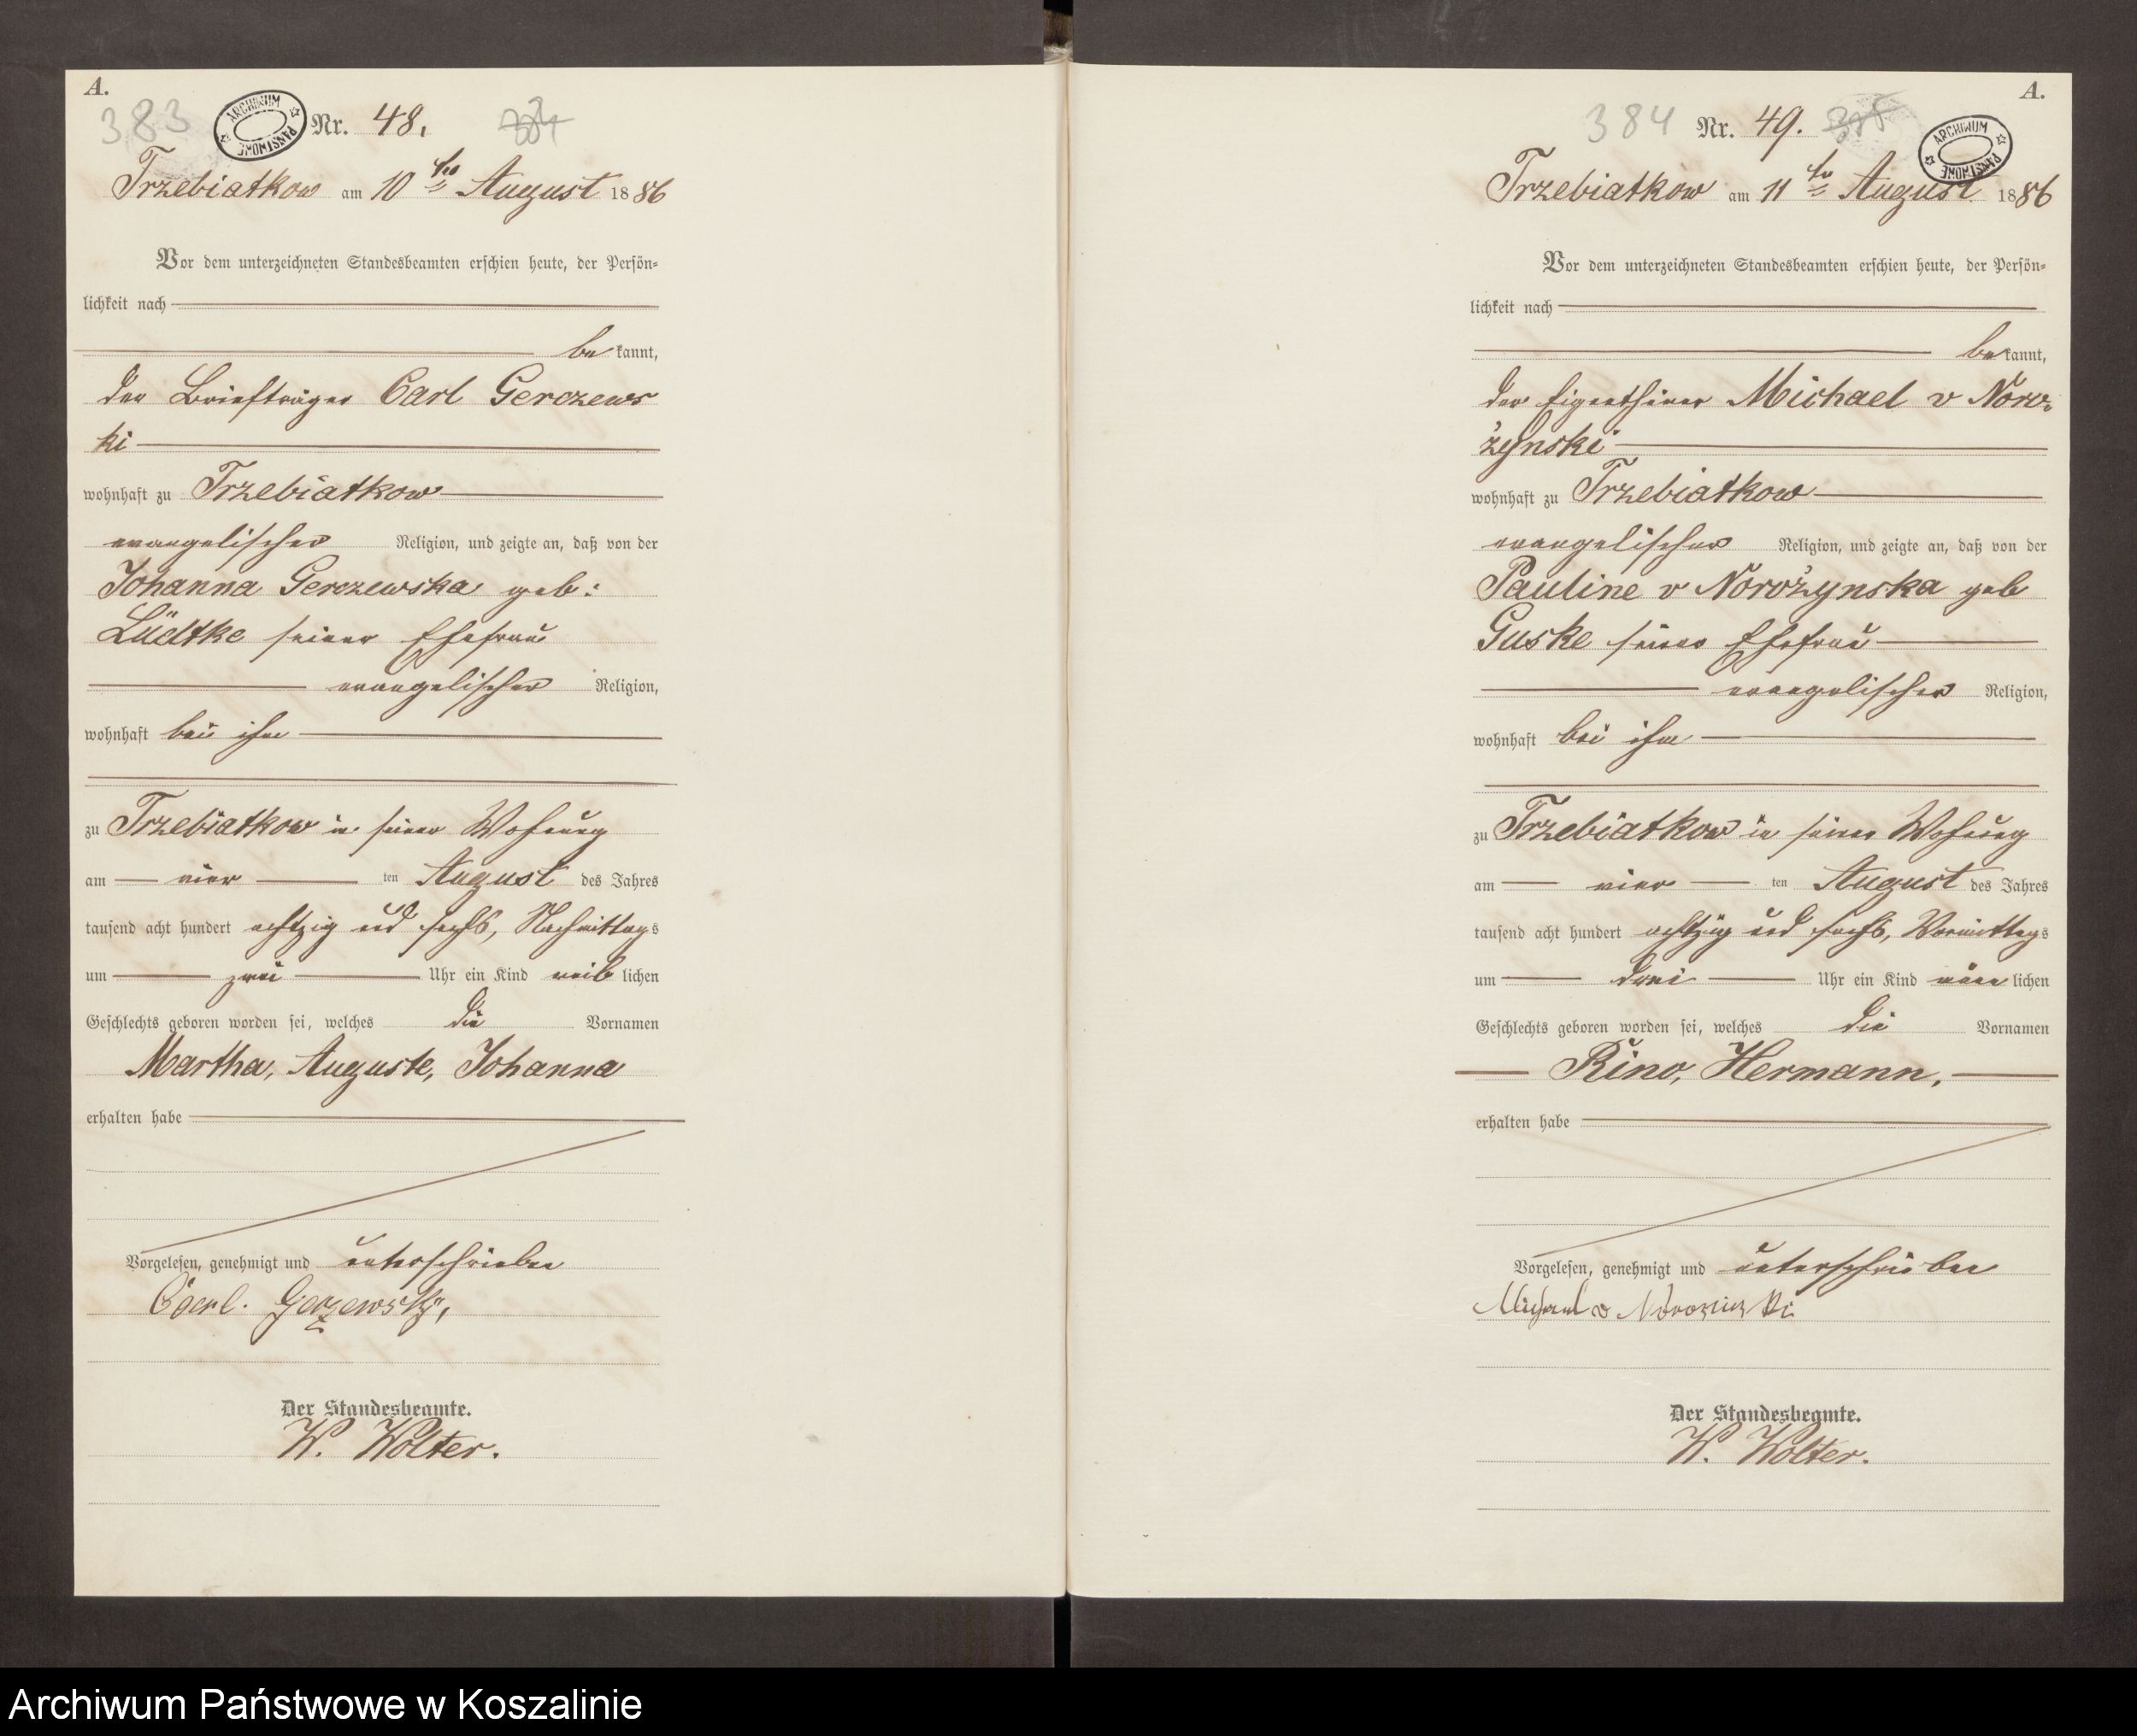 A.
383
ARCHIWUM PAŃSTWOWE
Nr. 48.
Trzebiatkow am 10ten August 1886
Vor dem unterzeichneten Standesbeamten erschien heute, der Persön-
lichkeit nach
be kannt,
der Briefträger Carl Gerczews
ki
wohnhaft zu Trzebiatkow
evangelischer Religion, und zeigte an, daß von der
Johanna Gerczewska geb:
Lüdtke seiner Ehefrau
evangelischer Religion,
wohnhaft bei ihm
zu Trzebiatkow in seiner Wohnung
am vier ten August des Jahres
tausend acht hundert achtzig und sechs, Nachmittags
um zwei Uhr ein Kind weib lichen
Geschlechts geboren worden sei, welches die Vornamen
Martha, Auguste, Johanna
erhalten habe
Vorgelesen, genehmigt und unterschrieben
Carl. Gerzewski,
Der Standesbeamte.
W. Wolter.
A.
384
Nr. 49.
ARCHIWUM PAŃSTWOWE
Trzebiatkow am 11ten August 1886
Vor dem unterzeichneten Standesbeamten erschien heute, der Persön-
lichkeit nach
be kannt,
der Eigenthümer Michael v Noro-
żynski
wohnhaft zu Trzebiatkow
evangelischer Religion, und zeigte an, daß von der
Pauline v Norożynska geb
Guske seiner Ehefrau
evangelischer Religion,
wohnhaft bei ihm
zu Trzebiatkow in seiner Wohnung
am vier ten August des Jahres
tausend acht hundert achtzig und sechs, Vormittags
um drei Uhr ein Kind män lichen
Geschlechts geboren worden sei, welches die Vornamen
Rino, Hermann.
erhalten habe
Vorgelesen, genehmigt und unterschrieben
Michael v
Der Standesbeamte.
W. Wolter.
Archiwum Państwowe w Koszalinie